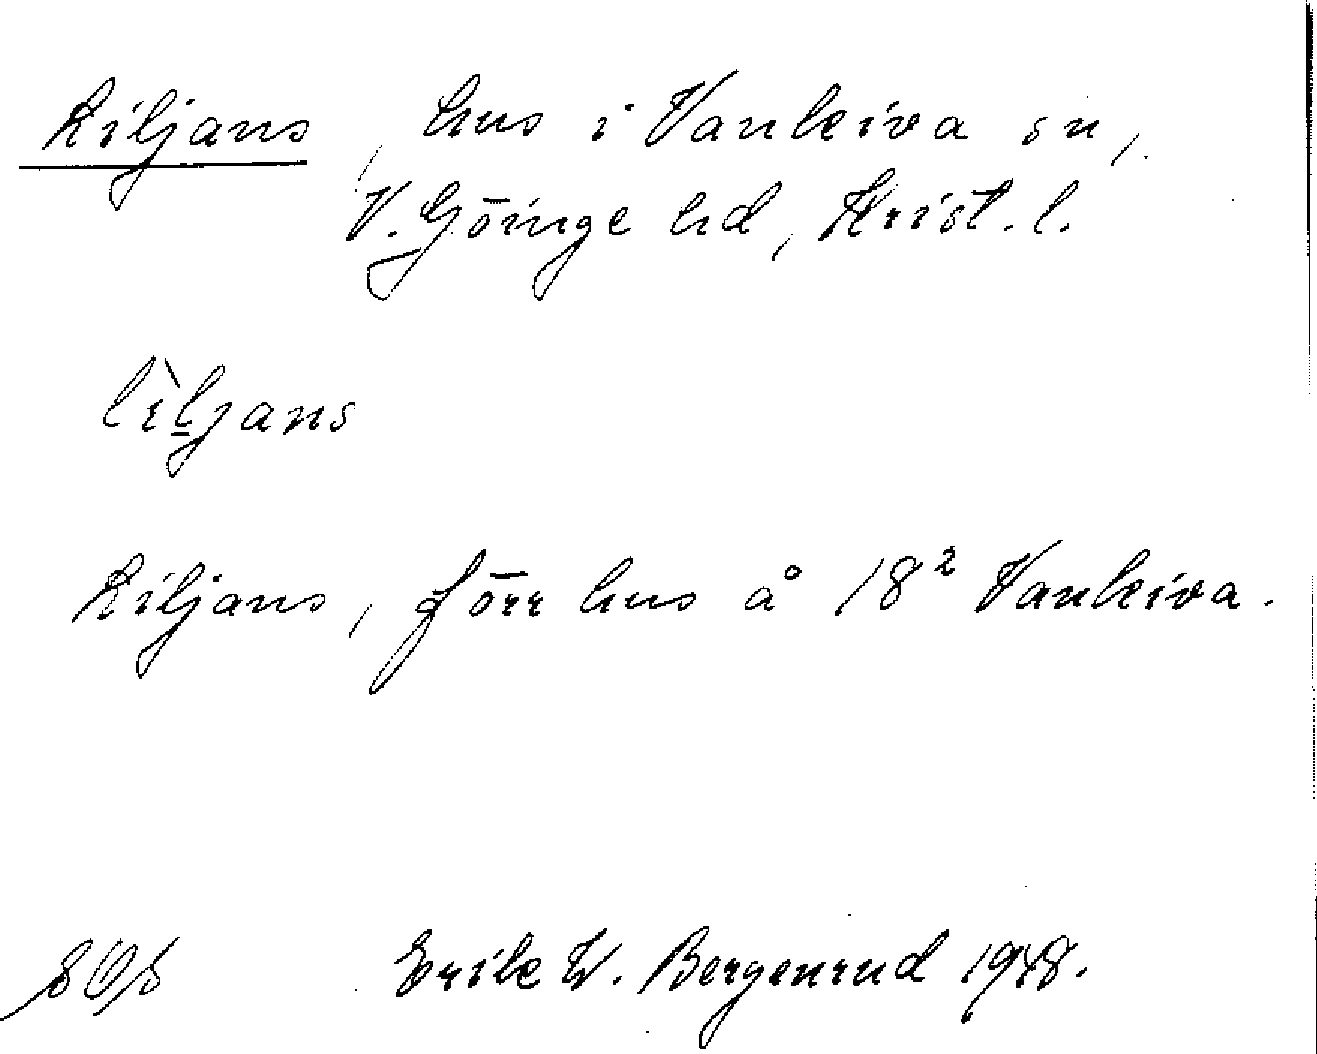 Kiljans, hus i Vankiva sn,
V. Göinge hd, Krist. l.
kìljans
Kiljans, förr hus å 18² Vankiva.
SOS Erik W. Bergenrud 1948.